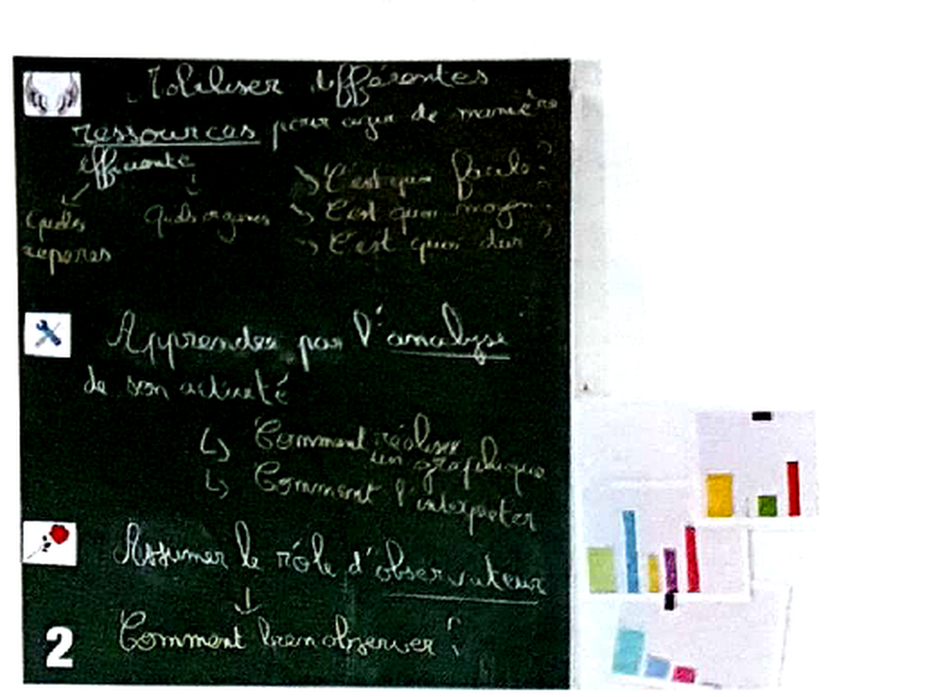 Mobiliser différentes
ressources pour agir de manière
efficiente
Quels repères
Quels organes
C'est quoi facile?
C'est quoi moyen?
C'est quoi dur?
Apprendre par l'analyse
de son activité
Comment réaliser
un graphique
Comment l'interpréter
Assumer le rôle d'observateur
Comment bien observer?
2